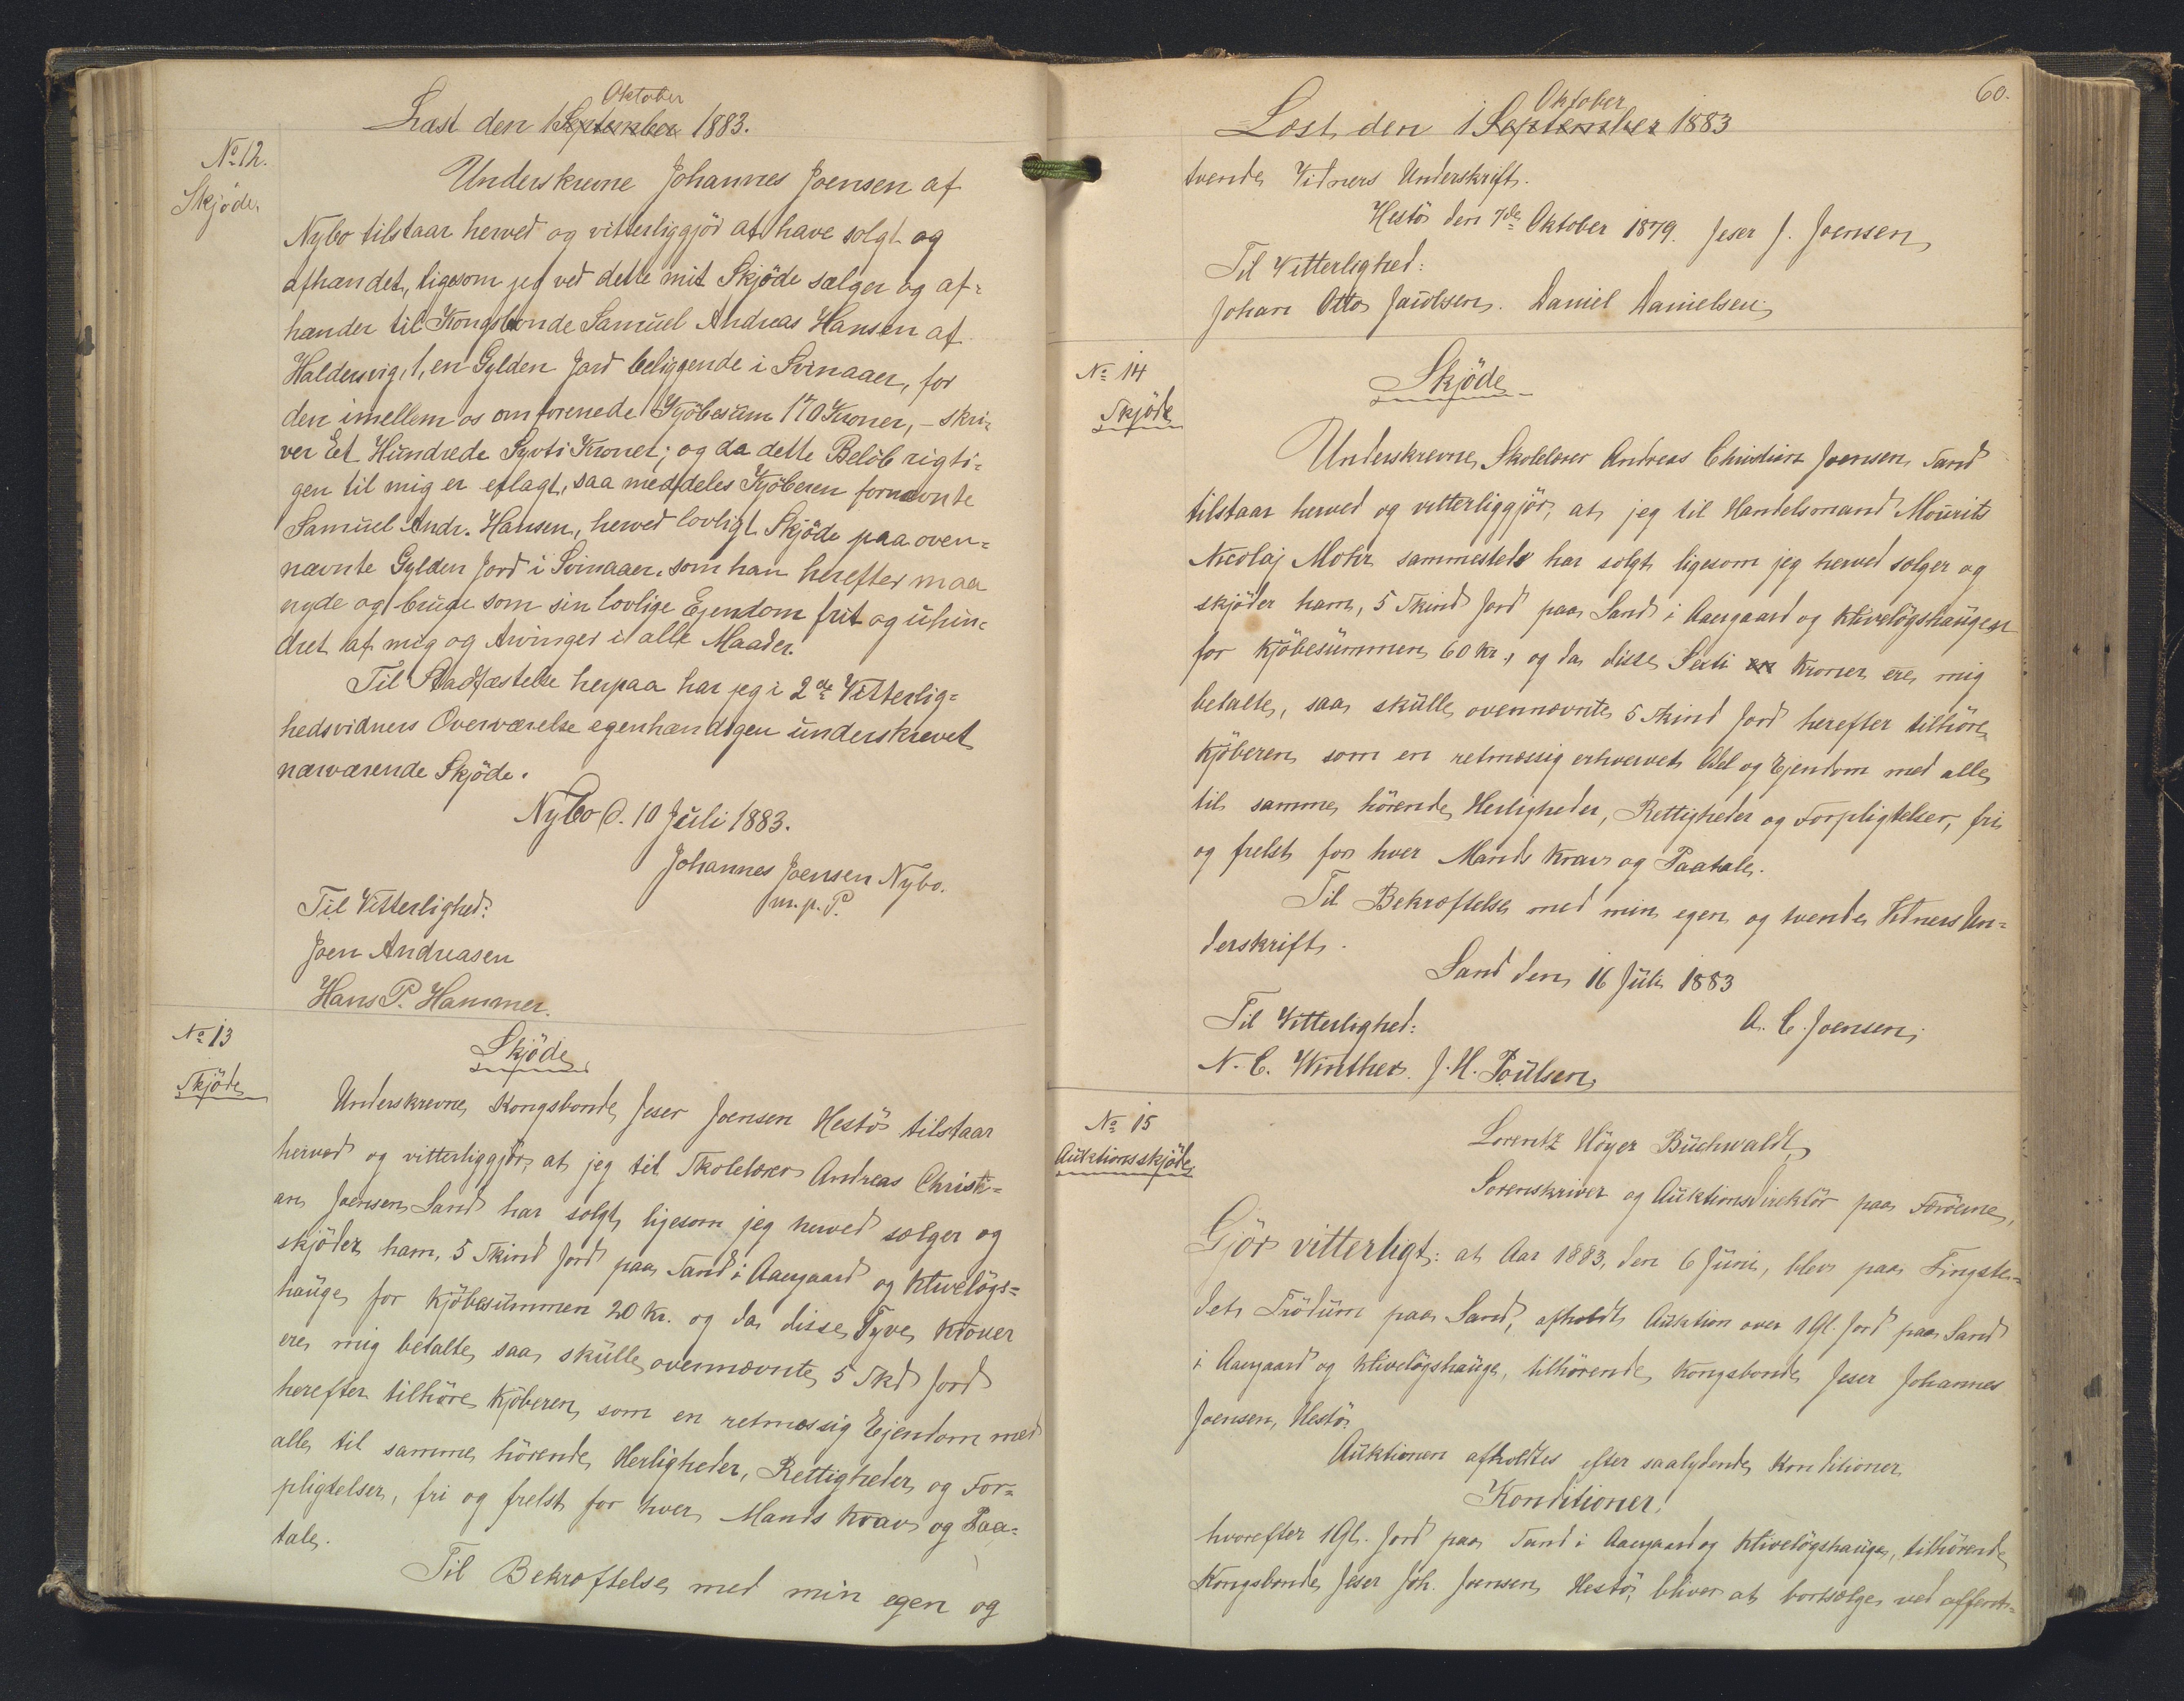 Læst den 1 September Oktober 1883.
No 12.
Skjöde.
Underskrevne Johannes Joensen af
Nybo tilstaar herved og vitterliggjör at have solgt og
afhændet, ligesom jeg ved dette mit Skjöde sælger og af=
hænder til Kongsbonde Samuel Andreas Hansen af
Haldersvig, 1, en Gylden Jord beliggende i Svinaaer, for
den imellem os omforenede Kjöbesum 170 Kroner, - skri=
ver Et Hundrede Syvti Kroner; og da dette Belöb rigti=
gen til mig er erlagt, saa meddeles Kjöberen fornævnte
Samuel Andr. Hansen, herved lovligt Skjöde paa oven=
nævnte Gylden Jord i Svinaaer, som han herefter maa
nyde og bruge som sin lovlige Ejendom frit og uhin=
dret af mig og Arvinger i alle Maader.
Til Stadfæstelse herpaa har jeg i 2de Vitterlig=
hedsvidners Overværelse egenhændigen underskrevet
nærværende Skjöde.
Nybo d. 10 Juli 1883.
Johannes Joensen Nybo.
m. p. P.
Til Vitterlighed:
Joen Andreasen
Hans P. Hammer.
No 13
Skjöde
Skjöde
Underskrevne Kongsbonde Jeser Joensen Hestö tilstaar
herved og vitterliggjör, at jeg til Skolelærer Andreas Christi=
an Joensen Sand har solgt, ligesom jeg herved sælger og
skjöder ham, 5 Skind Jord paa Sand i Aaergaard og Klivelögs=
hauge for Kjöbesummen 20 Kr. og da disse Tyve Kroner
ere mig betalte, saa skulle ovennævnte 5 Skd Jord
herefter tilhöre Kjöberen som en retmæssig Ejendom med
alle til samme hörende Herligheder, Rettigheder og For=
pligtelser, fri og frelst for hver Mands Krav og Paa=
tale.
Til Bekræftelse med min egen og
60.
Læst den 1 September Oktober 1883
tvende Vidners Underskrift.
Hestö den 7de Oktober 1879. Jeser J. Joensen
Til Vitterlighed:
Johan Otto Jacobsen. Daniel Danielsen
No 14
Skjöde
Skjöde
Underskrevne Skolelærer Andreas Christian Joensen Sand
tilstaar herved og vitterliggjör, at jeg til Handelsmand Mourits
Nicolaj Mohr sammesteds har solgt ligesom jeg herved sælger og
skjöder ham, 5 Skind Jord paa Sand i Aaergaard og Klivelögshaugen
for Kjöbesummen 60 Kr., og da disse Sexti Kroner ere mig
betalte, saa skulle ovennævnte 5 Skind Jord herefter tilhöre
Kjöberen som en retmæssig erhvervet Odel og Ejendom med alle
til samme hörende Herligheder, Rettigheder og Forpligtelser, fri
og frelst for hver Mands Krav og Paatale.
Til Bekræftelse med min egen og tvende Vidners Un=
derskrift.
Sand den 16 Juli 1883
A. C. Joensen
Til Vitterlighed:
N. C. Winther. J. H. Poulsen
No 15
Auktionsskjöde
Lorentz Höyer Buchwaldt,
Sorenskriver og Auktionsdirektör paa Færöerne,
Gjör vitterligt: at Aar 1883, den 6 Juni, blev paa Tingste=
det Trödum paa Sand, afholdt Auktion over 1 Gl. Jord paa Sand
i Aaergaard og Klivelögshauge, tilhörende Kongsbonde Jeser Johannes
Joensen, Hestö.
Auktionen afholdtes efter saalydende Konditioner
Konditioner!
hvorefter 1 Gl. Jord paa Sand i Aaergaard og Klivelögshauge, tilhörende
Kongsbonde Jeser Joh. Joensen Hestö, bliver at bortsælge ved offent=